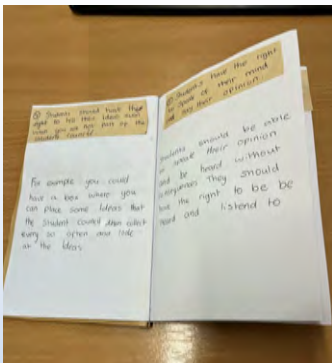 ① Students should have the
right to tell their Ideas even
when you are not part of the
students council
For example you could
have a box where you
can place some Ideas that
the student council then collect
every so often and look
at the Ideas.
② Students have the right
to speak of their mind
and say their opinion
Students should be able
to speak their opinion
and be heard without
consequences They should
have the right to be be
heard and listend to